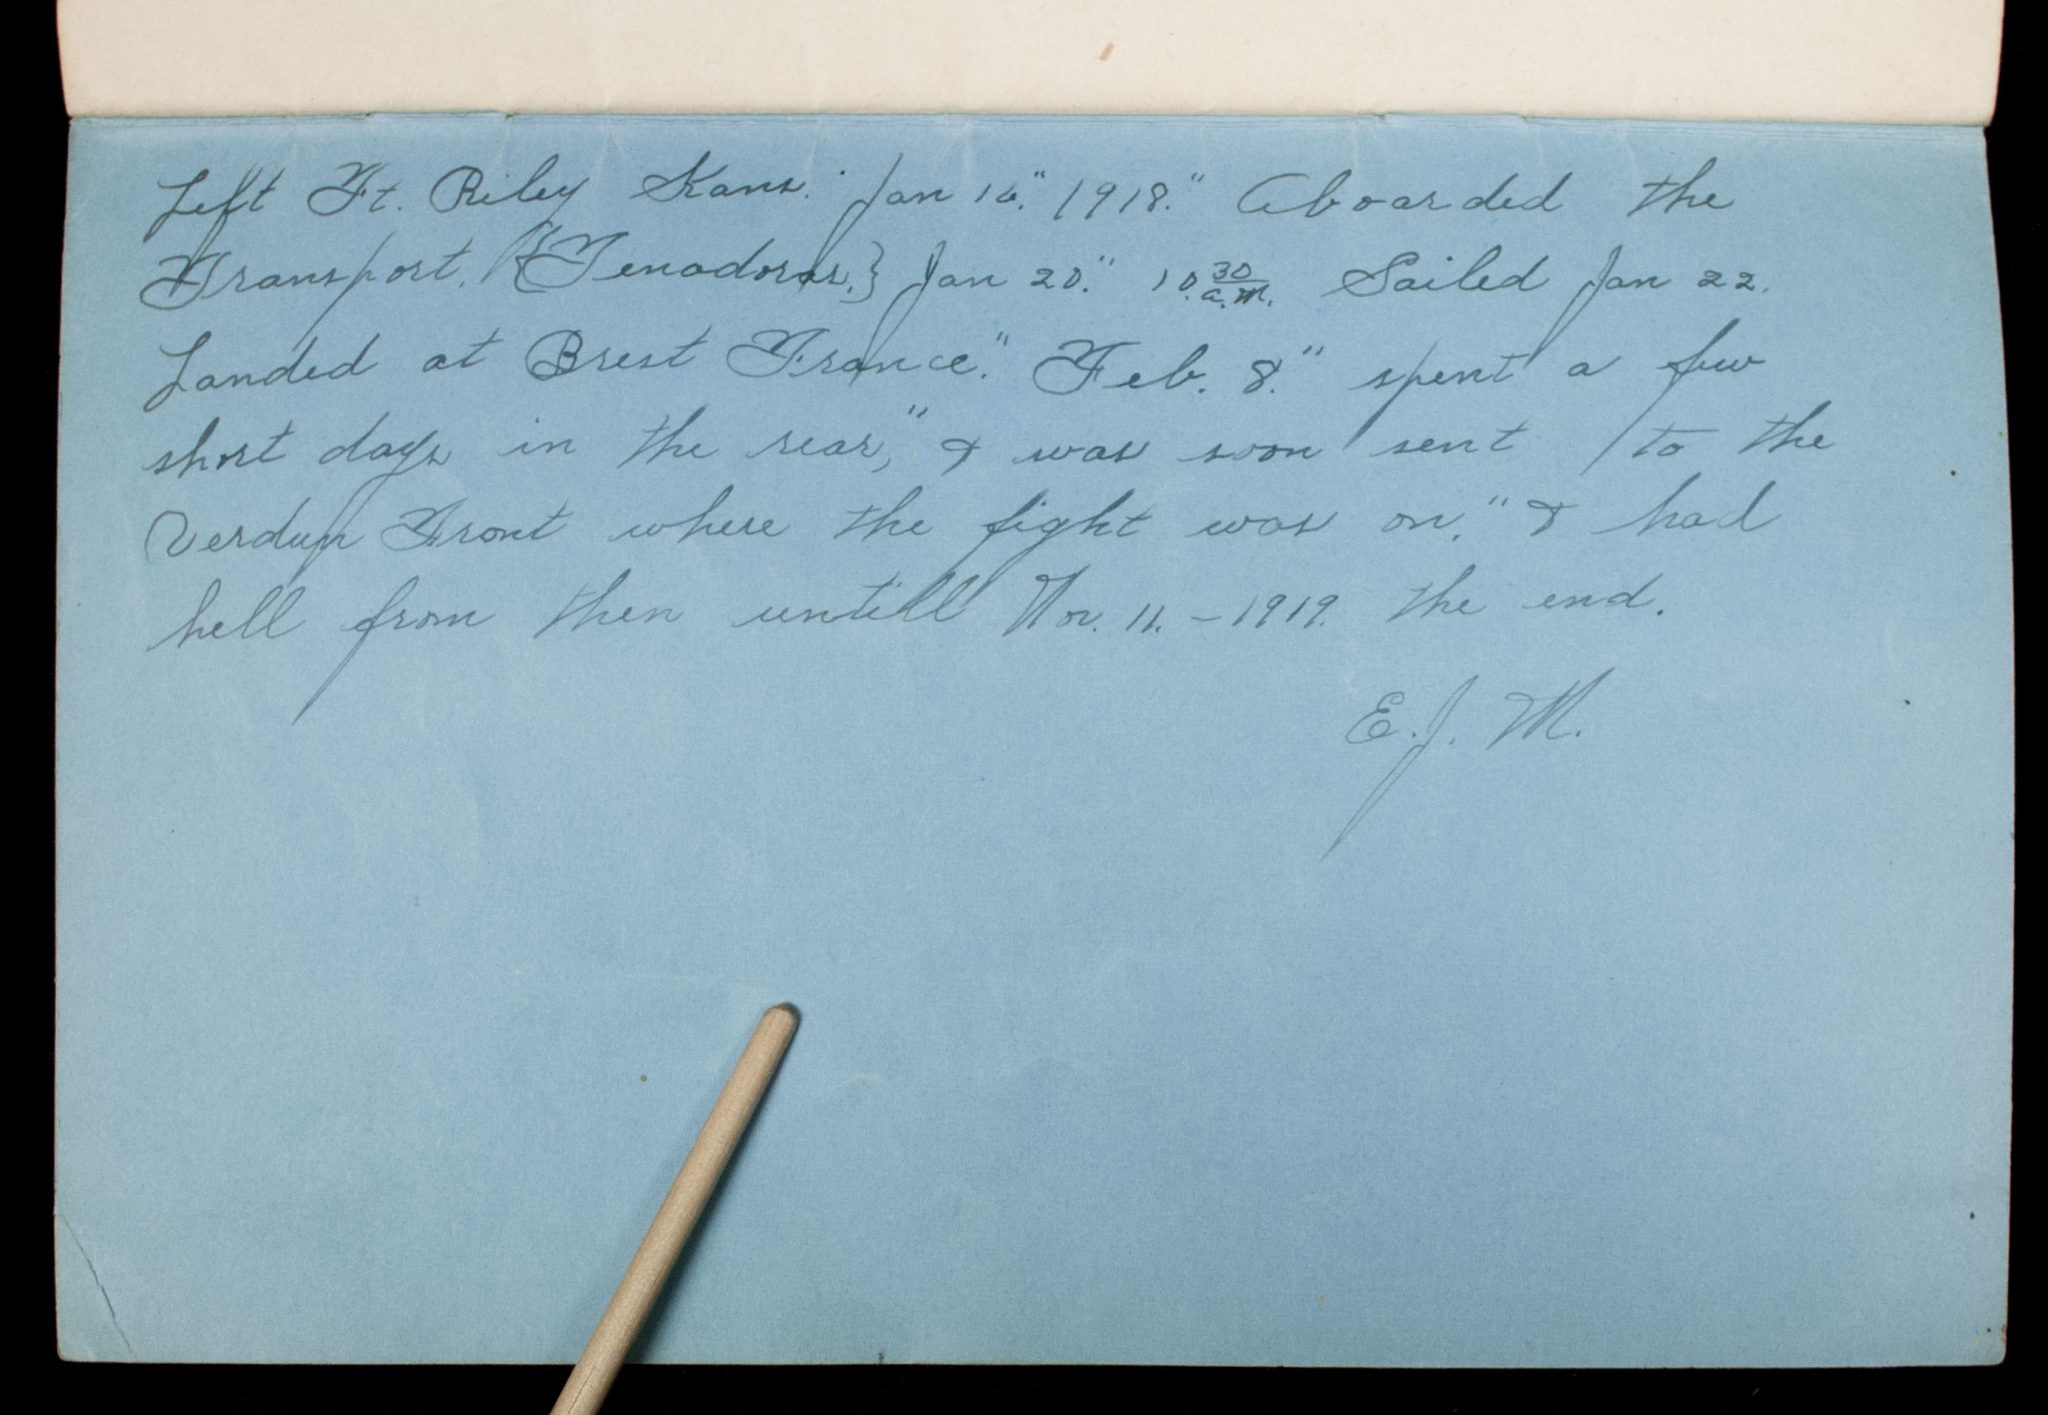 Left Ft. Riley Kans. Jan 16." 1918." Aboarded the
Transport. {"Tenadores.} Jan 20." 10.30 a.m. Sailed Jan 22.
Landed at Brest France." Feb. 8." spent a few
short days in the rear," & was soon sent to the
Verdun Front where the fight was on." & had
hell from then untill Nov. 11. - 1919. the end.
E. J. M.